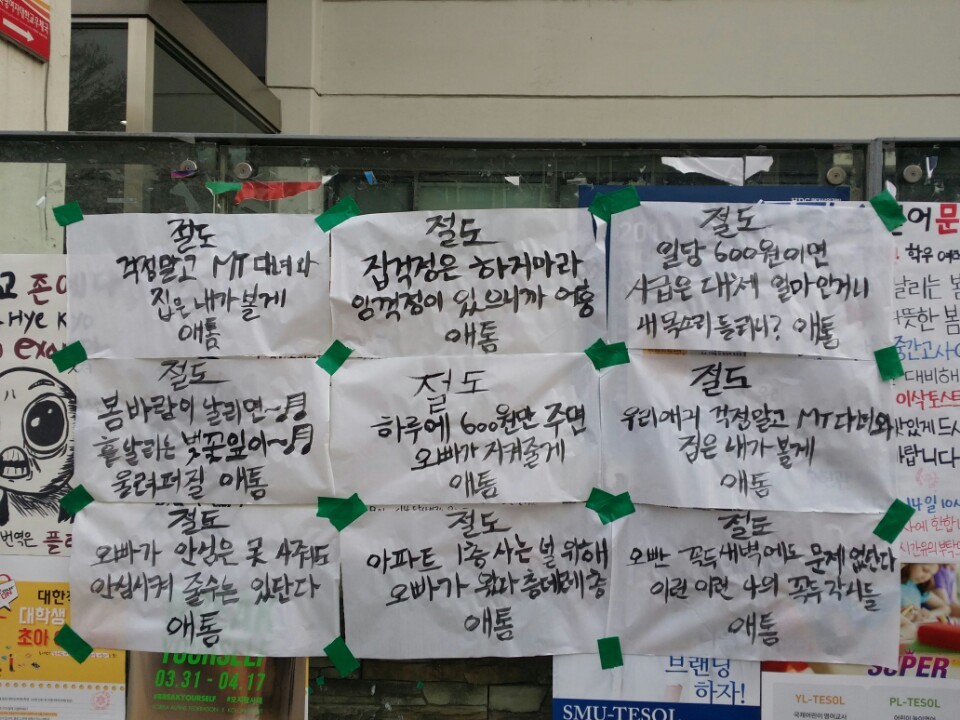 절도
걱정말고 MT 다녀와
집은 내가 볼게
애톰
절도
잡걱정은 하지마라
임꺽정이 있으니까 어흥
애톰
절도
일당 600원이면
시급은 대체 얼마인거니
내 목소리 들리니? 애톰
절도
봄바람이 날리면~♬
흩날리는 벚꽃잎이~♬
울려퍼질 애톰
절도
하루에 600원만 주면
오빠가 지켜줄게
애톰
절도
우리애기 걱정말고 MT 다녀와
집은 내가 볼게
애톰
절도
오빠가 안심은 못 사줘도
안심시켜 줄수는 있단다
애톰
절도
아파트 1층 사는 널 위해
오빠가 왔다 층데레층
애톰
절도
오빤 꼭두새벽에도 문제 없단다
이런 이런 나의 꼭두각시들
애톰
번역은
대한
대학생
초아
YOURSELF
03.31 - 04.17
브랜딩
하자!
SMU-TESOL
SUPER
YL-TESOL
PL-TESOL
어 문
! 학우 여
날리는 봄
뜻한 봄
중간고사
대비해
이삭토스트
맛있게 드시
바랍니다